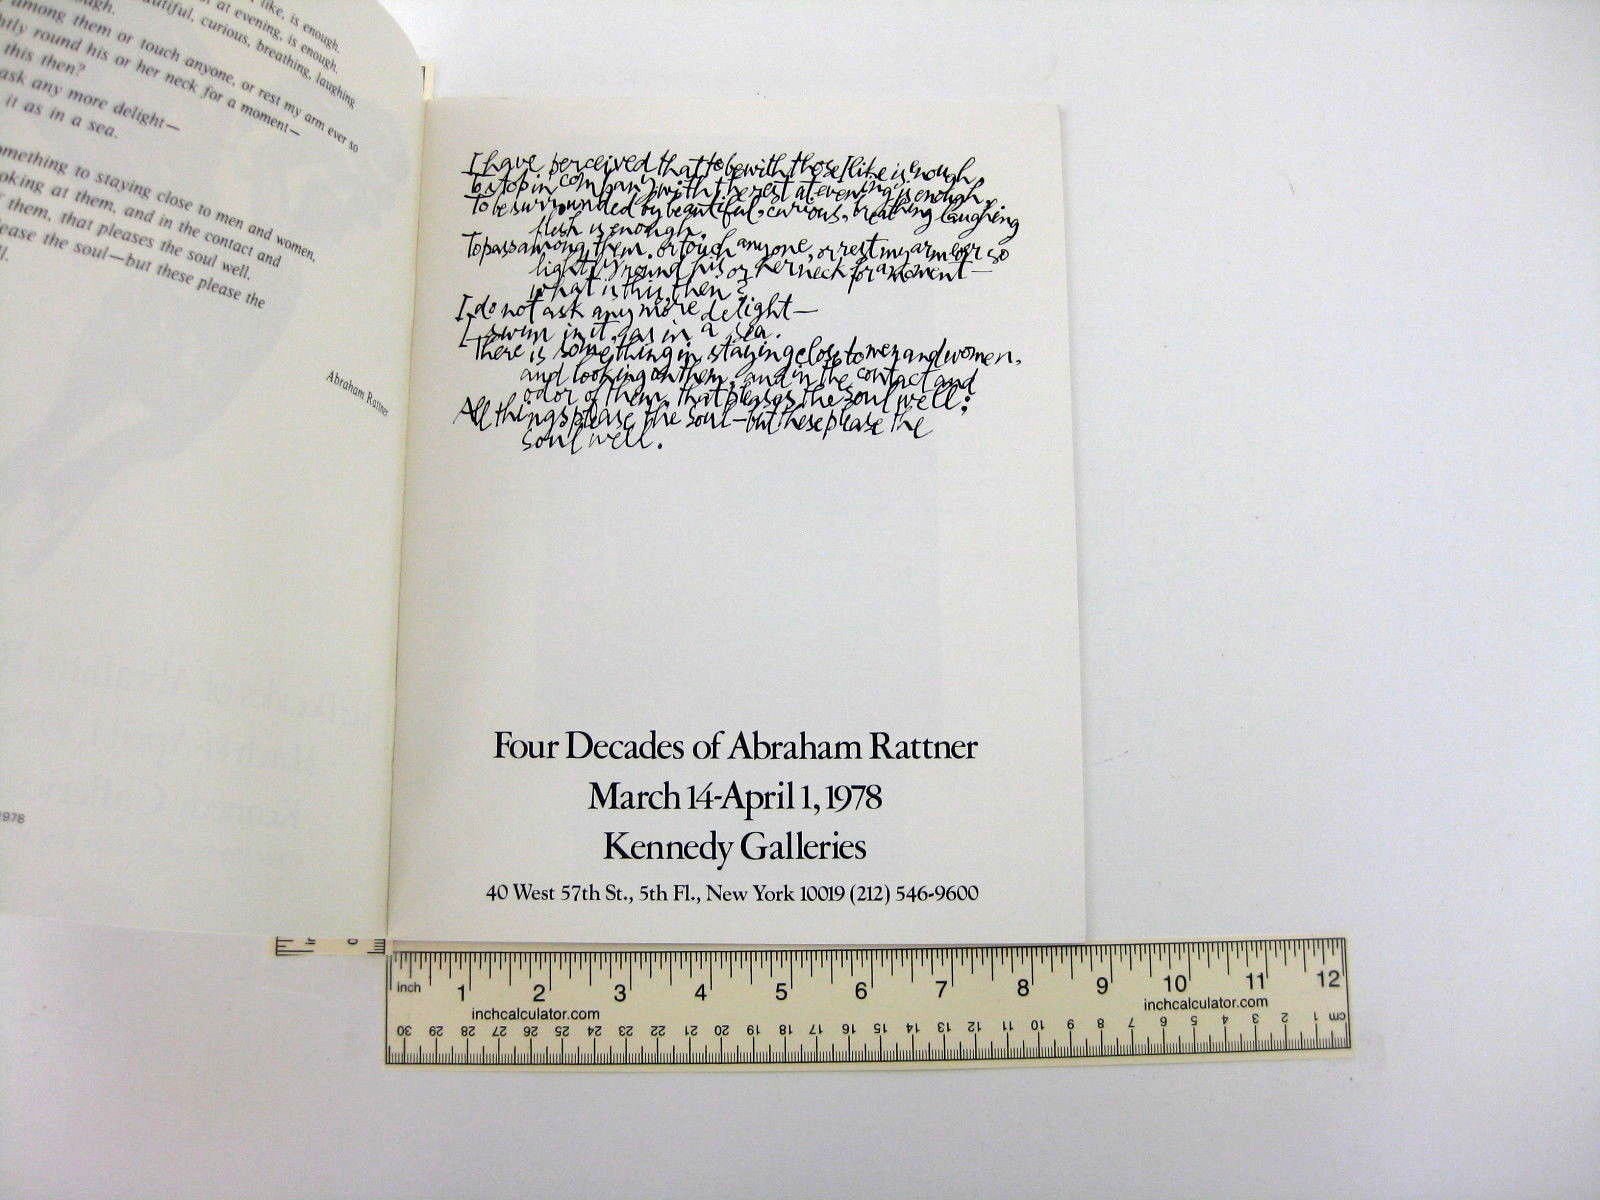 like, is enough.
at evening, is enough.
beautiful, curious, breathing, laughing
among them or touch anyone, or rest my arm ever so
round his or her neck for a moment—
this then?
ask any more delight—
it as in a sea.
something to staying close to men and women,
looking at them, and in the contact and
them, that pleases the soul well.
please the soul—but these please the
Abraham Rattner
1978
I have perceived that to be with those I like is enough,
to stop in company with the rest at evening is enough,
To be surrounded by beautiful, curious, breathing laughing
flesh is enough,
To pass among them. or touch any one, or rest my arm ever so
lightly round his or her neck for a moment—
what is this, then?
I do not ask any more delight—
I swim in it, as in a sea.
There is something in staying close to men and women,
and looking on them, and in the contact and
odor of them, that pleases the soul well;
All things please the soul—but these please the
soul well.
Four Decades of Abraham Rattner
March 14-April 1, 1978
Kennedy Galleries
40 West 57th St., 5th Fl., New York 10019 (212) 546-9600
inch 1 2 3 4 5 6 7 8 9 10 11 12
inchcalculator.com inchcalculator.com
30 29 28 27 26 25 24 23 22 21 20 19 18 17 16 15 14 13 12 11 10 9 8 7 6 5 4 3 2 1 cm